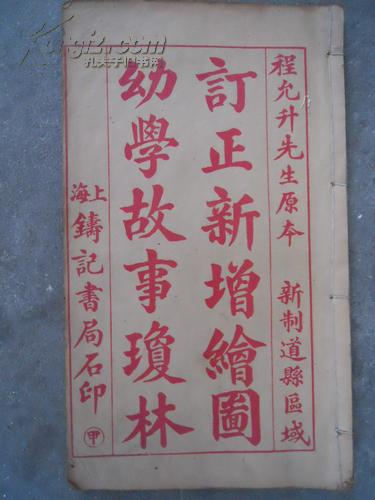 程允升先生原本 新制道縣區域
訂正新增繪圖
幼學故事瓊林
上海鑄記書局石印
甲
Kongfz.com
孔夫子旧书网